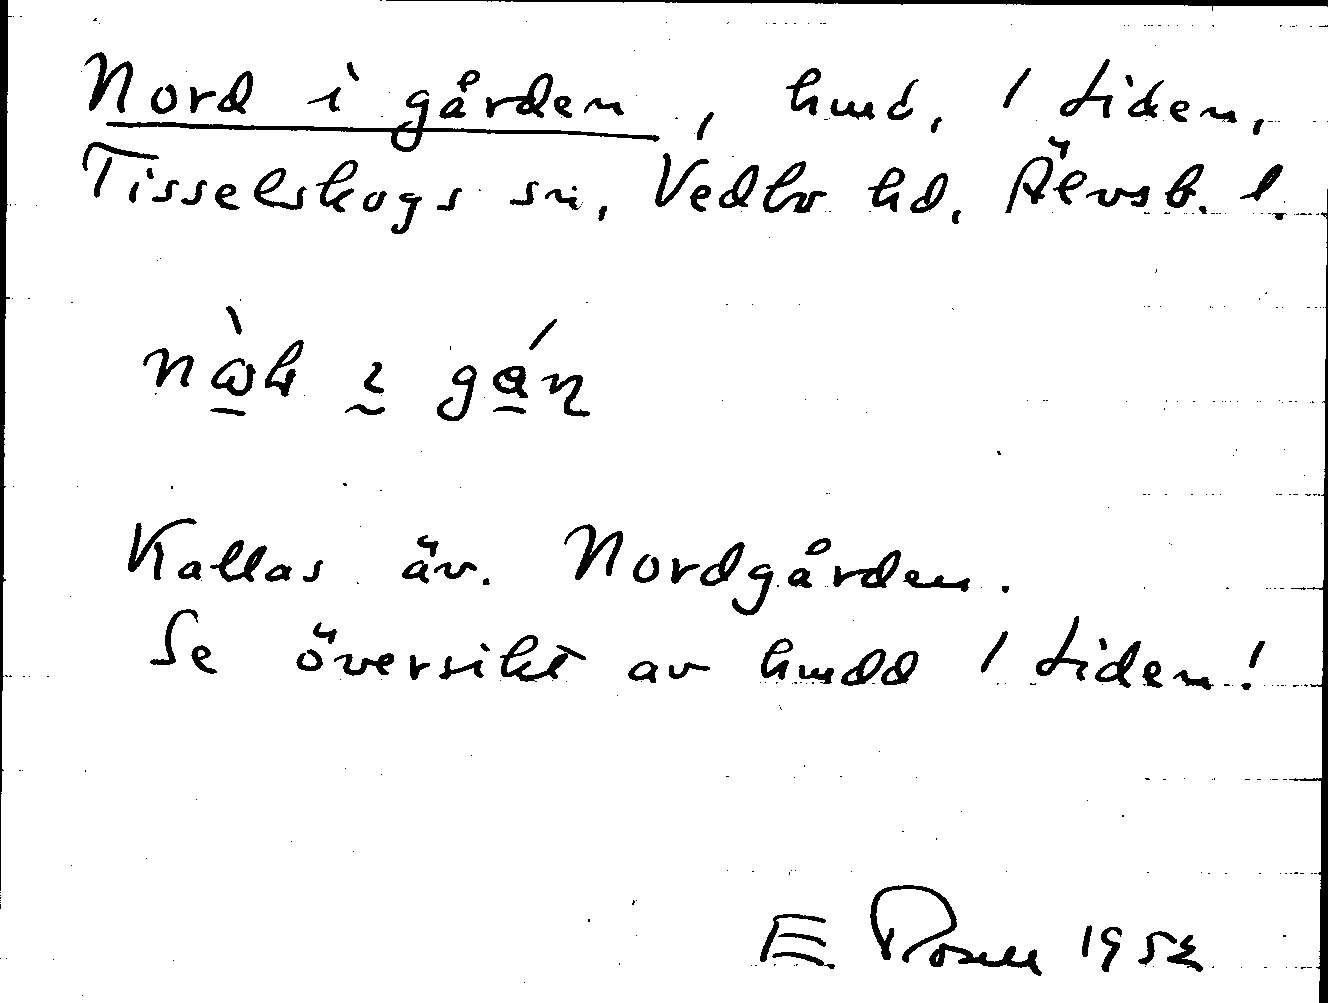 Nord i gården, hmd, 1 Liden,
Tisselskogs sn, Vedbo hd, Älvsb. l.
Kallas äv. Nordgården.
Se översikt av hmdd 1 Liden!
E. Rosell 1952